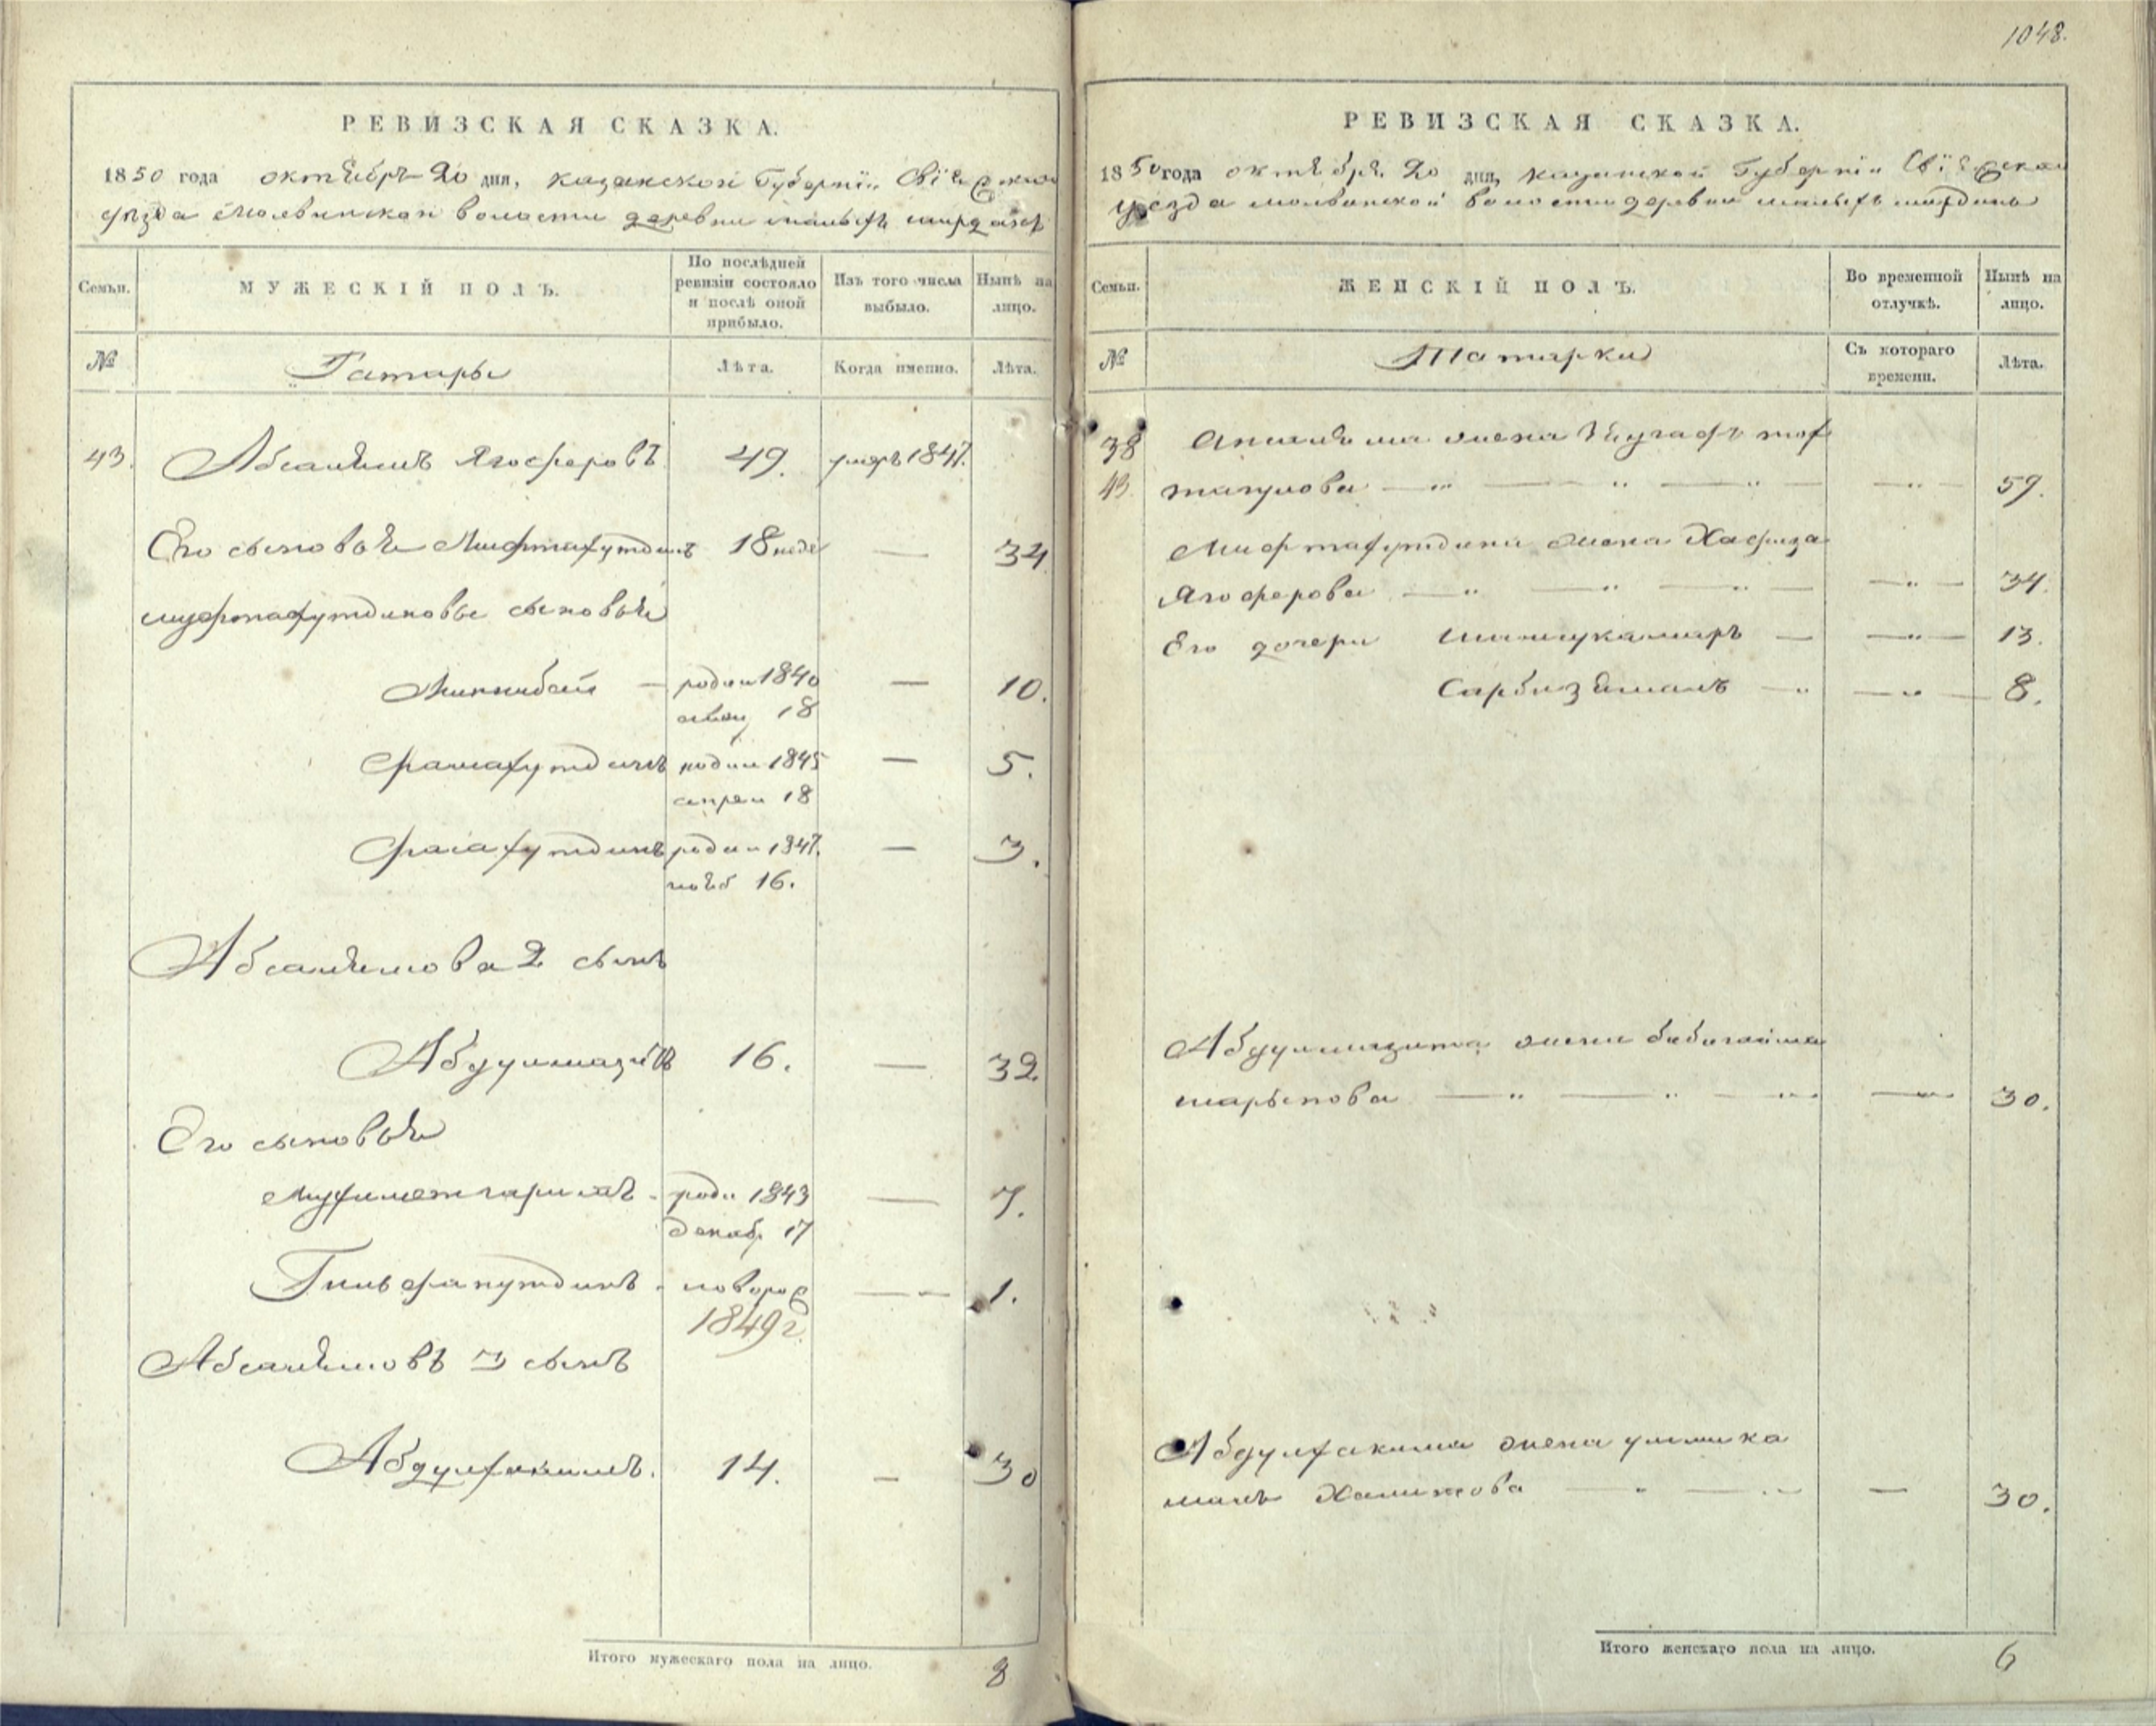 РЕВИЗСКАЯ СКАЗКА.
1850 года октября 20 дня, Казанской Губернiи Свiяжскаго
уѣзда Молвинской волости деревни малыхъ ширданъ
Семьи.
МУЖЕСКIЙ ПОЛЪ.
По послѣдней ревизiи состояло и послѣ оной прибыло.
Изъ того числа выбыло.
Нынѣ на лицо.
№
Татары
Лѣта.
Когда именно.
Лѣта.
43. Абсалямъ Ягоферовъ 49. умеръ 1847.
Его сыновья Мифтахутдинъ 18 — 34
мифтахутдиновы сыновья
Миннибай — родил 1840 — 10.
18
Фатхутдинъ родил 1845 — 5.
апрел 18
родил 1847. — 3.
нояб 16.
Абсалямова 2 сынъ
Абдулмазитъ 16. — 32
Его сыновья
Мухаметгарифъ - роди 1843 — 7.
декаб. 17
новорож — 1.
1849 г.
Абсалямовъ 3 сынъ
Абдулхакимъ. 14. — 30
Итого мужескаго пола на лицо. 8
1048.
РЕВИЗСКАЯ СКАЗКА.
1850 года октября 20 дня, Казанской Губернiи Свiяжскаго
уѣзда молвинской волости деревни малыхъ ширданъ
Семьи.
ЖЕНСКIЙ ПОЛЪ.
Во временной отлучкѣ.
Нынѣ на лицо.
№
Татарки
Съ котораго времени.
Лѣта.
38 жена
43 59.
Мифтахутдина жена Хафиза
Ягоферова — 34.
Его дочери Шамсукамаръ — 13.
Сарбизямалъ — 8.
Абдулмазита жена бибигайша
шарыпова — 30.
Абдулхакима жена уммика
малъ Халитова — 30.
Итого женскаго пола на лицо. 6